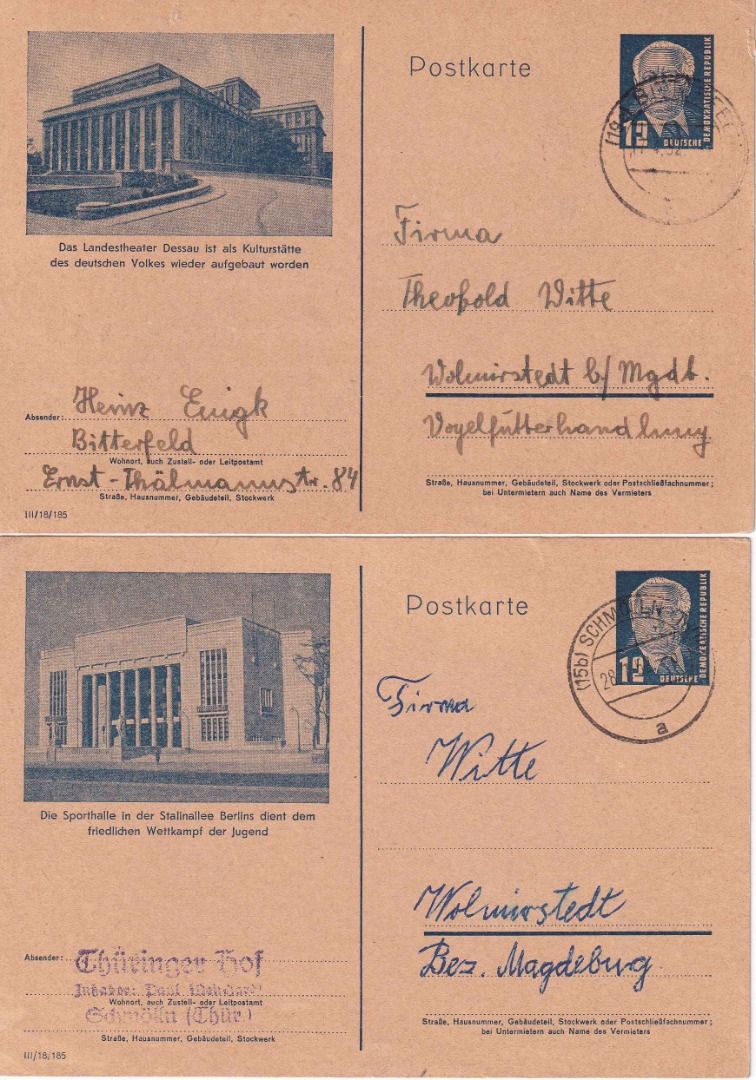 Postkarte
12
DEUTSCHE
DEMOKRATISCHE REPUBLIK
Das Landestheater Dessau ist als Kulturstätte
des deutschen Volkes wieder aufgebaut worden
Firma
Theobold Witte
Wolmirstedt b/ Mgdb.
Vogelfutterhandlung
Straße, Hausnummer, Gebäudeteil, Stockwerk oder Postschließfachnummer;
bei Untermietern auch Name des Vermieters
Absender: Heinz Enigk
Bitterfeld
Wohnort, auch Zustell- oder Leitpostamt
Ernst-Thälmannstr. 84
Straße, Hausnummer, Gebäudeteil, Stockwerk
III/18/185
Postkarte
12
DEUTSCHE
DEMOKRATISCHE REPUBLIK
(15b) SCHMÖLLN
28
a
Die Sporthalle in der Stalinallee Berlins dient dem
friedlichen Wettkampf der Jugend
Firma
Witte
Wolmirstedt
Bez. Magdeburg
Straße, Hausnummer, Gebäudeteil, Stockwerk oder Postschließfachnummer;
bei Untermietern auch Name des Vermieters
Absender: Thüringer Hof
Inhaber: Paul
Wohnort, auch Zustell- oder Leitpostamt
Schmölln (Thür.)
Straße, Hausnummer, Gebäudeteil, Stockwerk
III/18/185